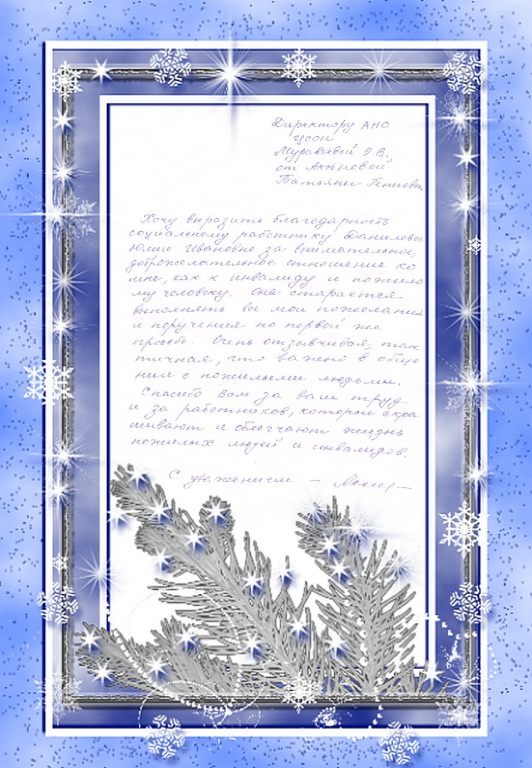 Директору АНО
ЦСОН
Муравьевой Э.В.
от Аксеновой
Татьяны
Хочу выразить благодарность
социальному работнику Данилевы
Юлии Ивановне за внимательное,
доброжелательное отношение ко
мне, как к инвалиду и пожило
му человеку. Она старается
выполнять все мои пожелания
и поручения по первой же
просьбе. Очень отзывчивая, так
тичная, что важно в обще
нии с пожилыми людьми.
Спасибо Вам за ваш труд
и за работников, которые скра
шивают и облегчают жизнь
пожилых людей и инвалидов.
С уважением –